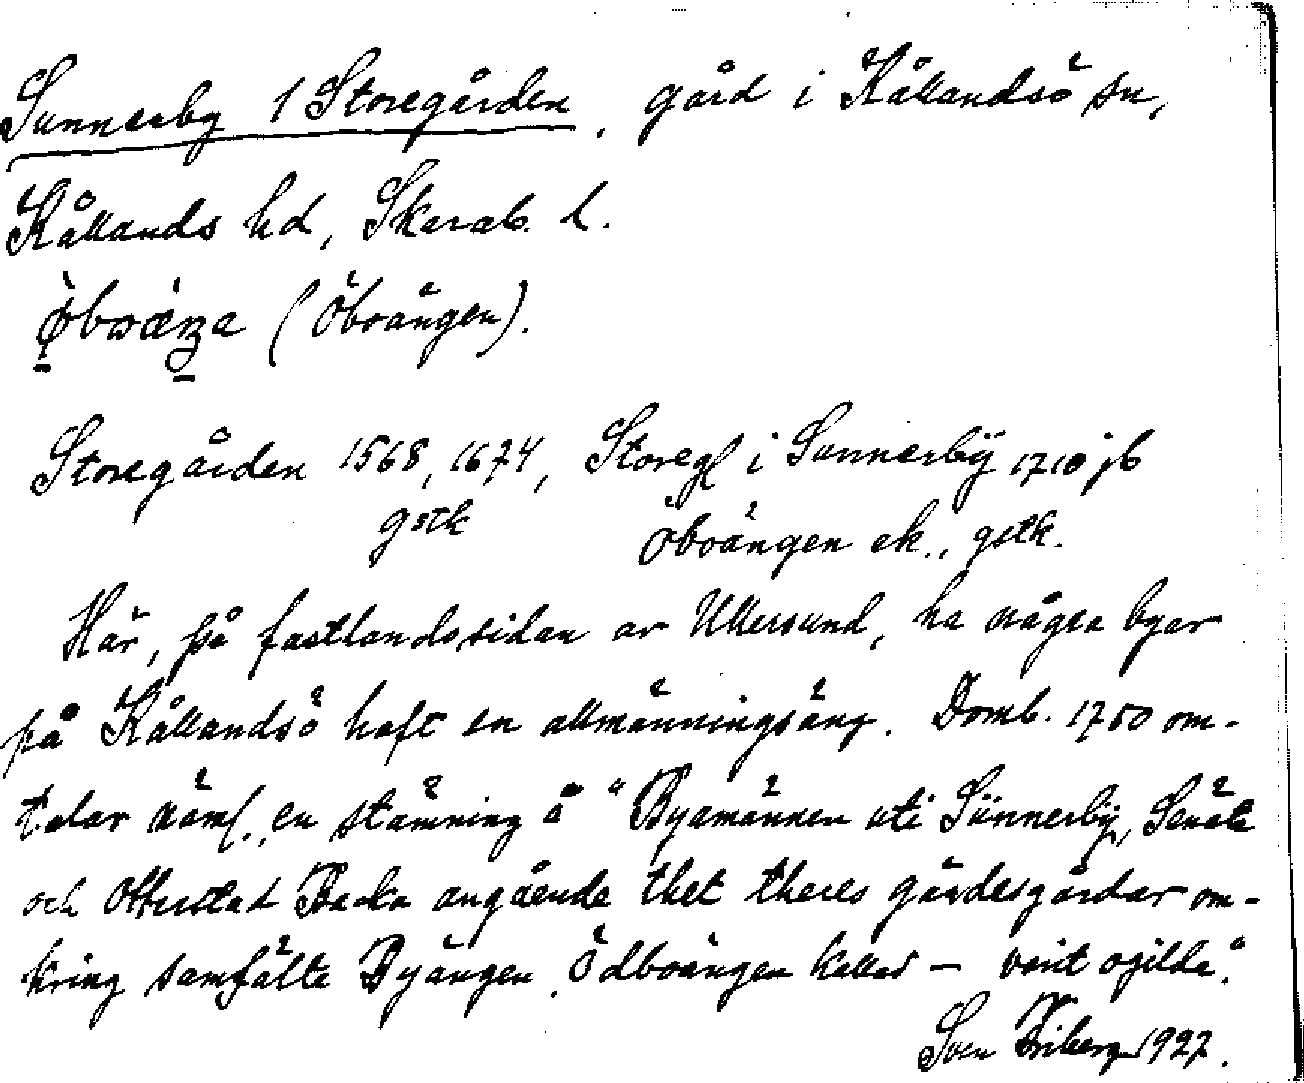 Sunnerby 1 Storegården, gård i Kållandsö sn,
Kållands hd, Skarab. l.
(Öboängen).
Storegården 1568, 1674, Storeg. i Sunnerbÿ 1710 jb
gstk Öboängen ek., gstk.
Här, på fastlandssidan av Ullersund, ha några byar
på Kållandsö haft en allmänningsäng. Domb. 1750 om-
talar näml. en stämning å "Byamännen uti Sünnerbÿ, Senäte
och Ottrestad Backa angående thet theres gärdesgårdar om-
kring samfälte Byängen, Ödboängen kallad – varit ogilda."
Sven Friberg 1927.